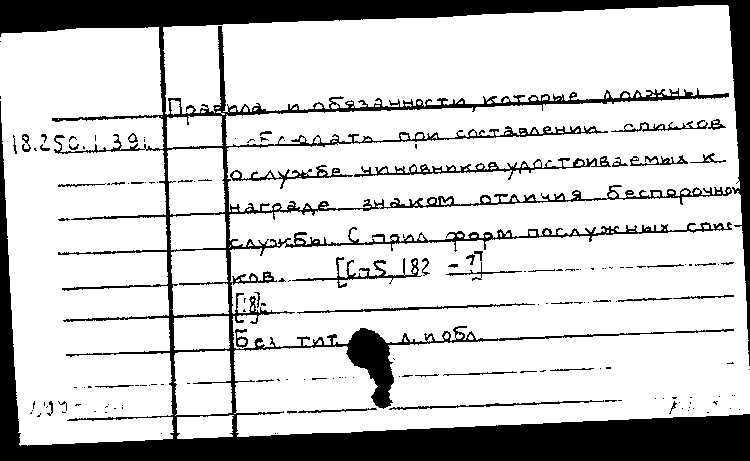 Правила и обязанности, которые должны
18.250.1.391. соблюдать при составлении списков
о службе чиновников, удостоиваемых к
награде знаком отличия беспорочной
службы. С прил. форм послужных спис-
ков. [Спб, 182 - ?]
[18]с.
Без тит. л. и обл.